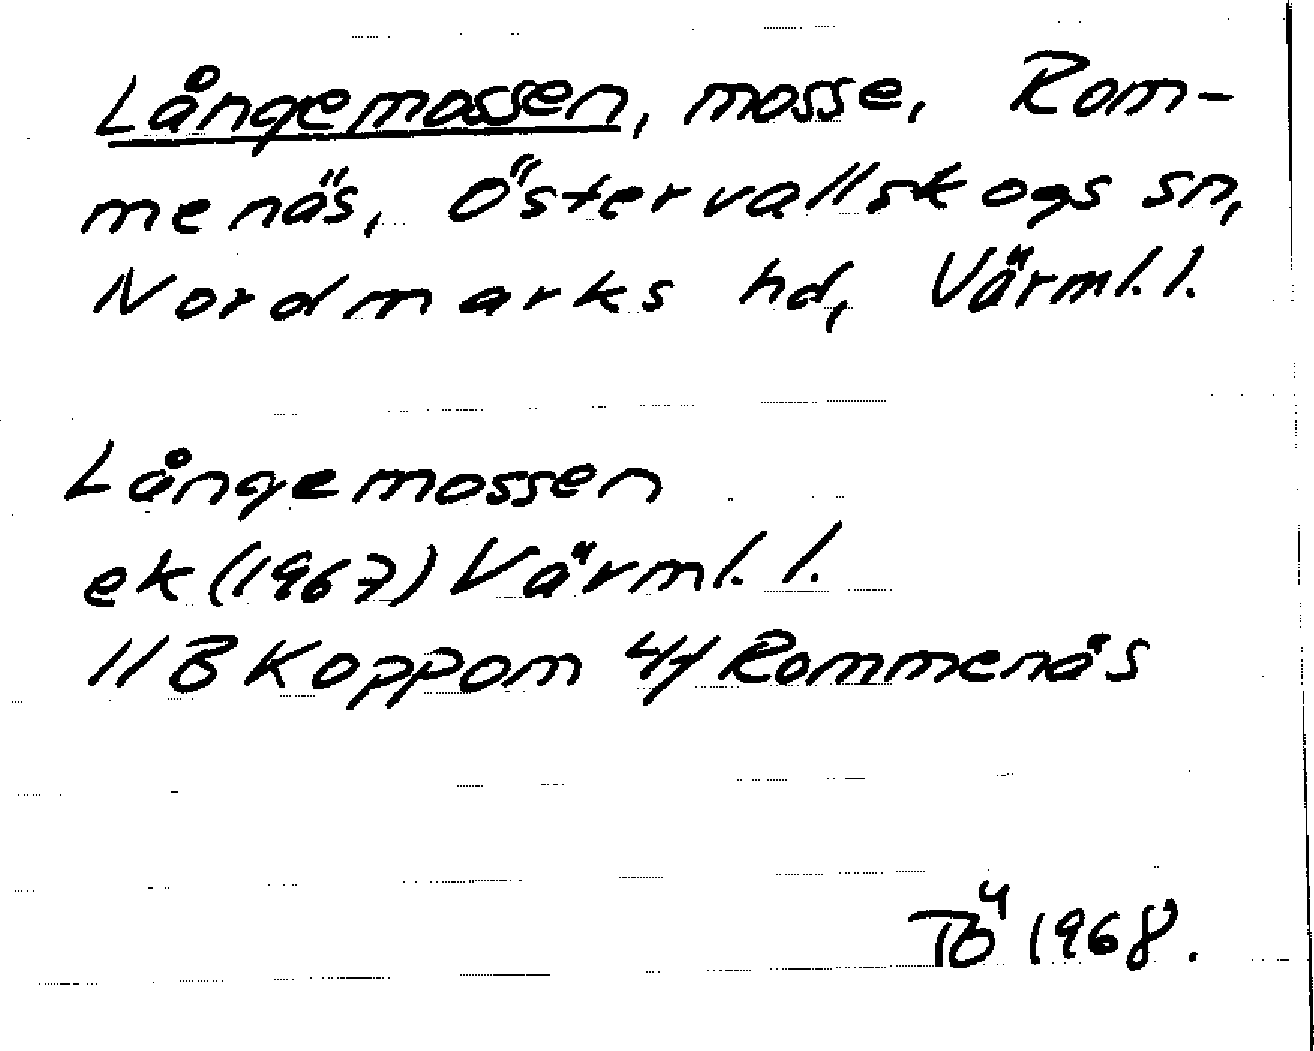 Långemossen, mosse, Rom-
menäs, Östervallskogs sn,
Nordmarks hd, Värml. l.
Långemossen
ek (1967) Värml. l.
11B Koppom 4f Rommenäs
TÖ 1968.